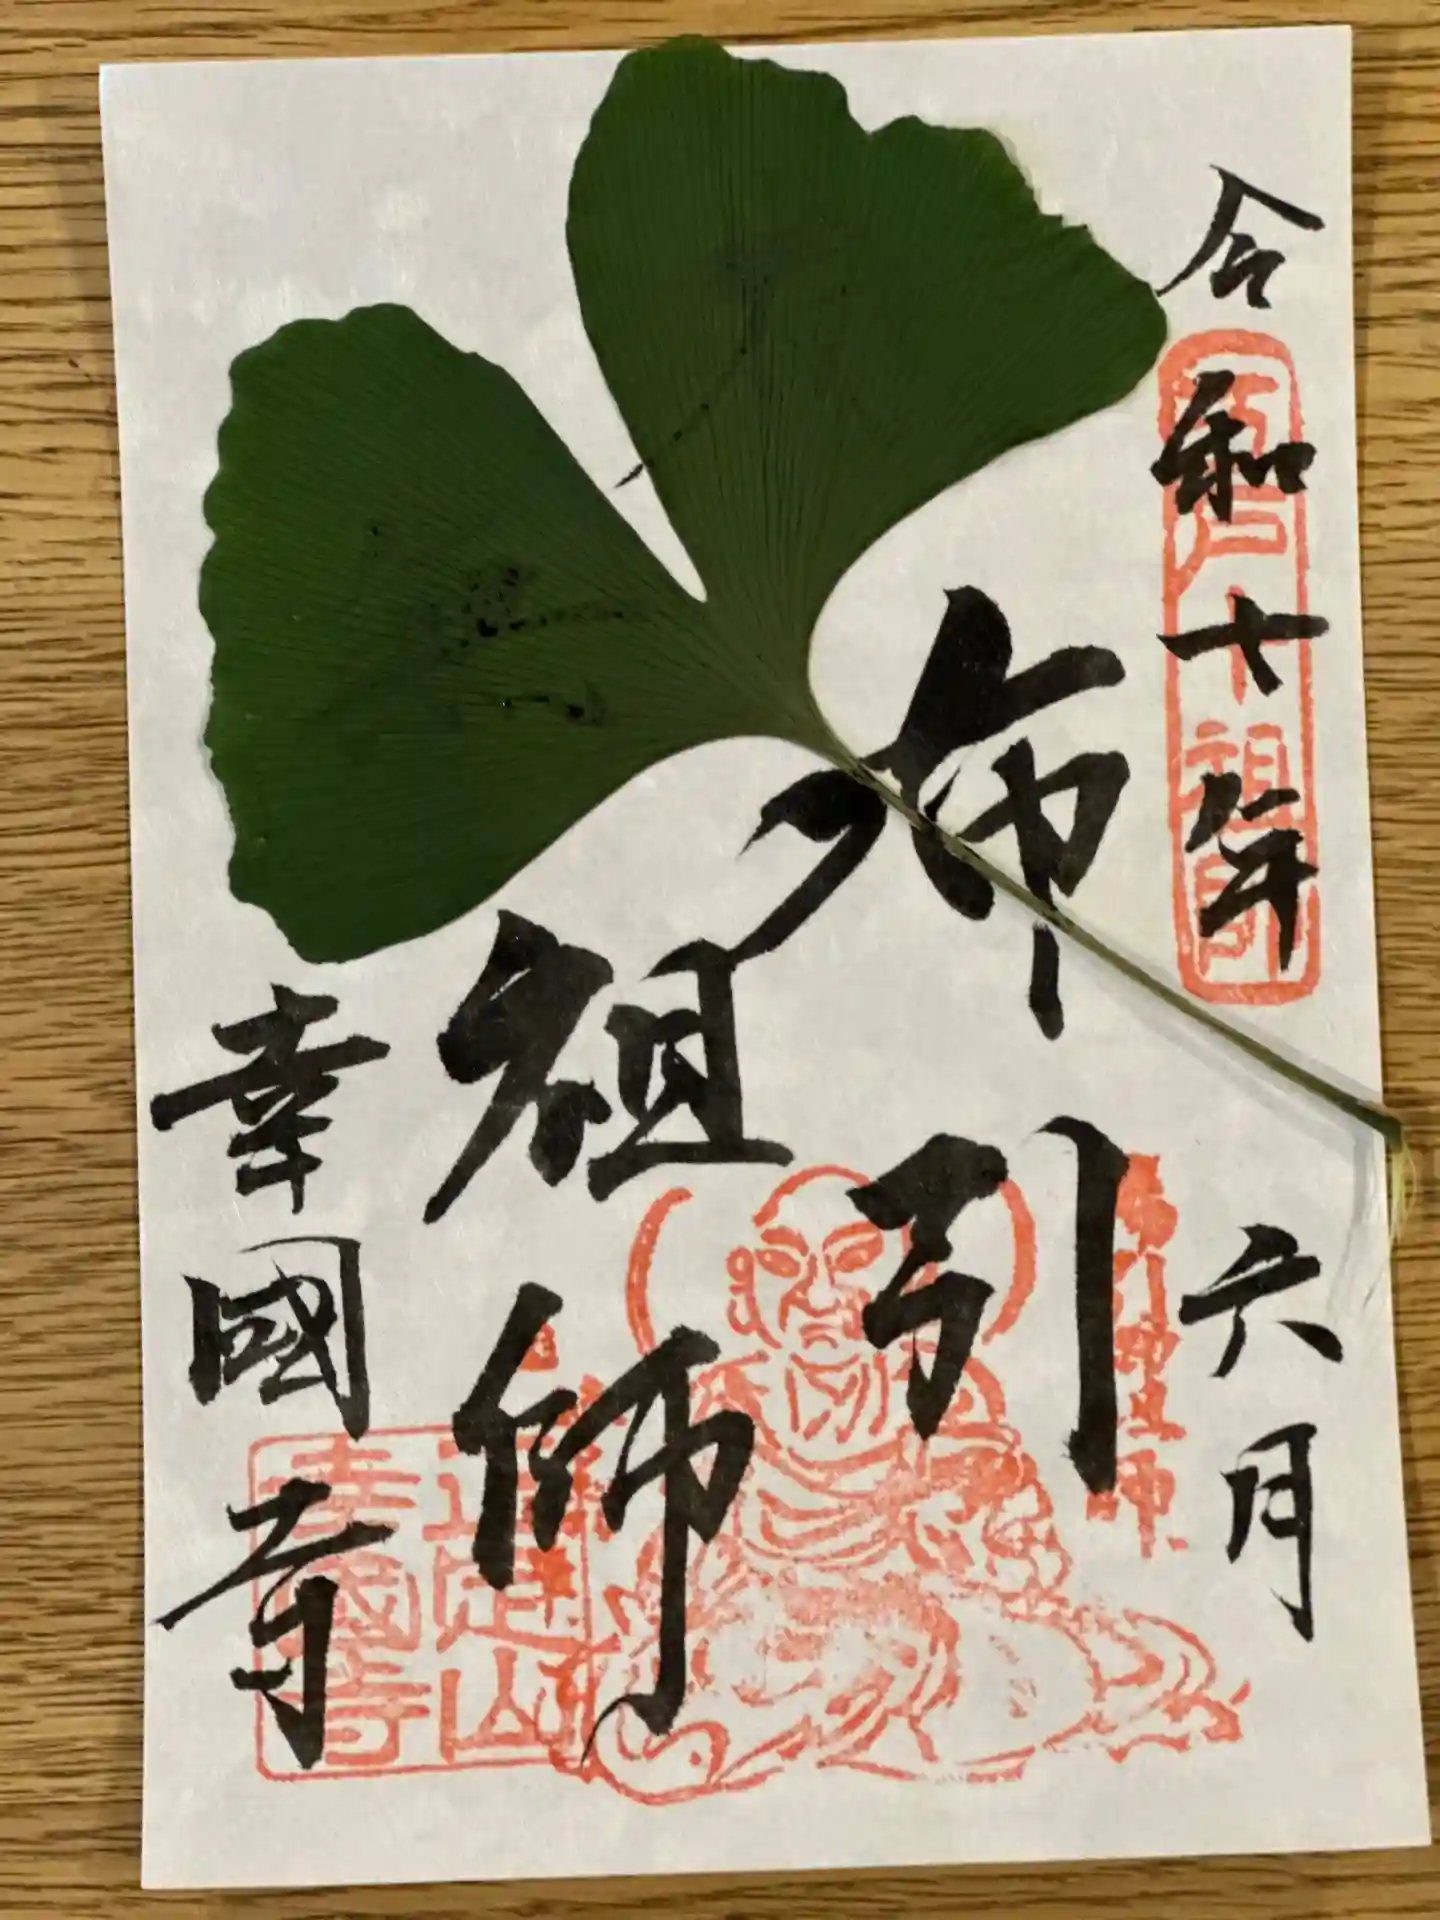 令和七年 六月
江戸十祖師
布引
祖師
布引祖師
幸國寺
正定山
幸國寺